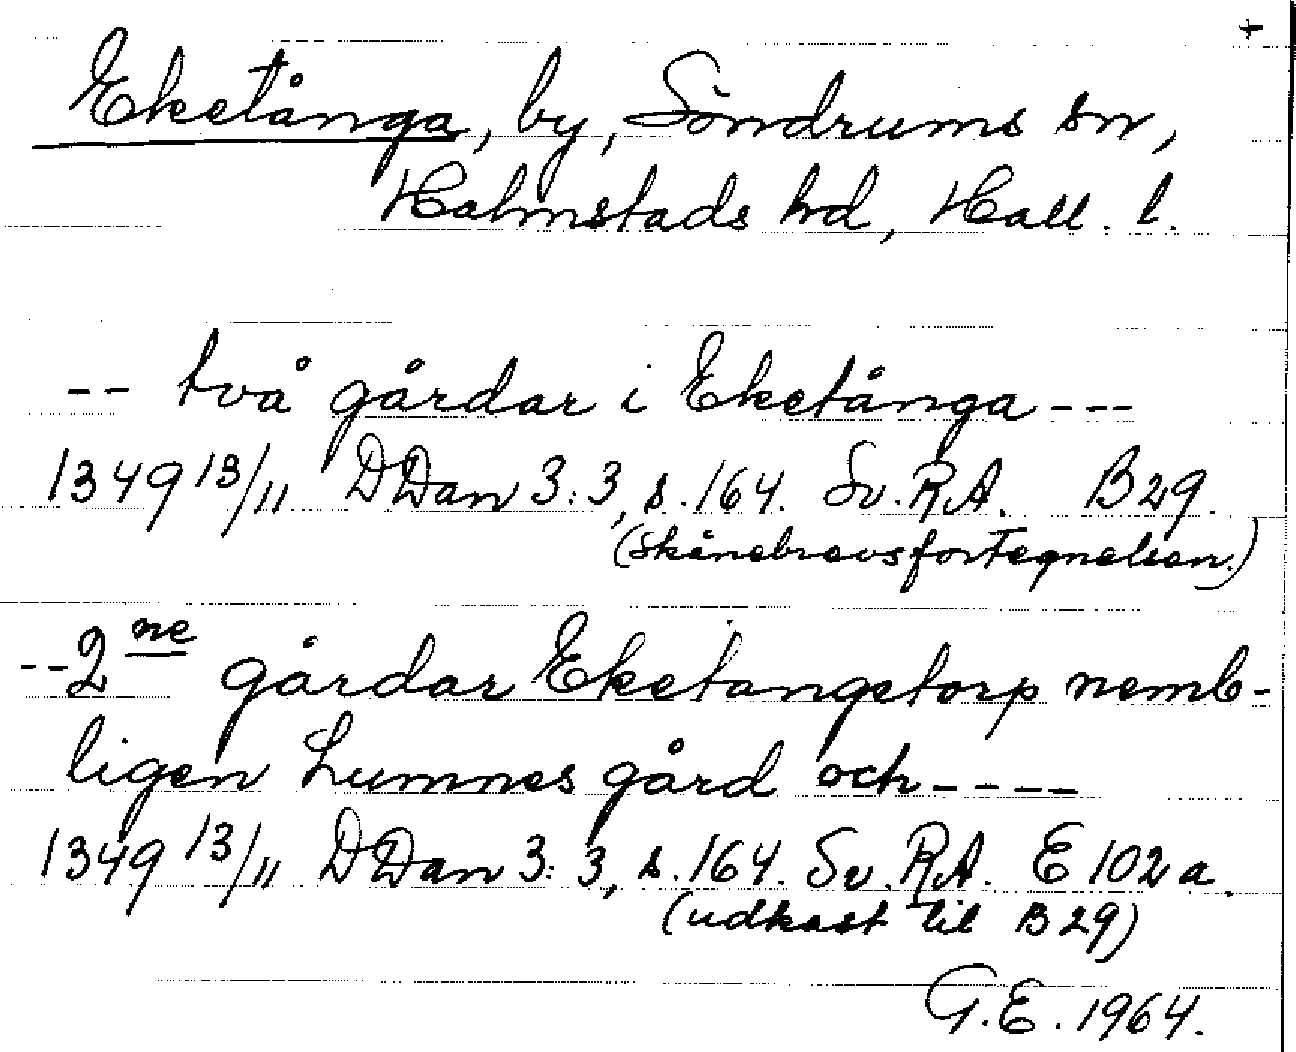 +
Eketånga, by, Söndrums sn,
Halmstads hd, Hall. l.
-- två gårdar i Eketånga ---
1349 13/11 DDan 3:3, s. 164. Sv. RA. B29.
(skånebrevsfortegnelsen.)
-- 2ne gårdar Eketangetorp nemb-
ligen Lumnes gård och ----
1349 13/11 DDan 3:3, s. 164. Sv. RA. E 102 a.
(udkast til B 29)
G.E. 1964.